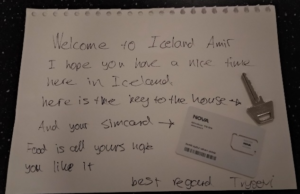 Welcome to Iceland Amir
I hope you have a nice time
here in Iceland
here is the key to the house →
And your simcard →
NOVA
Food is all yours hope
you like it
best regard